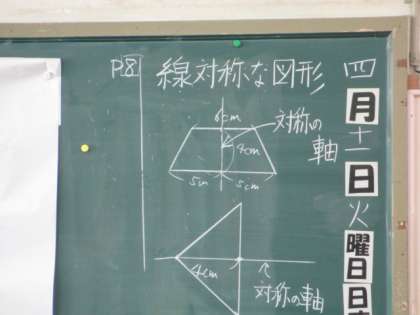 P8
線対称な図形
6cm
対称の
軸
4cm
5cm
5cm
4cm
対称の軸
四
月
十一
日
火
曜
日
日